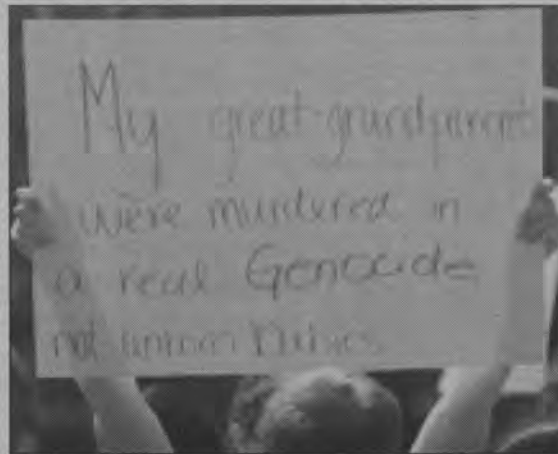 My great-grandparent
were murdered in
a real Genocide
not